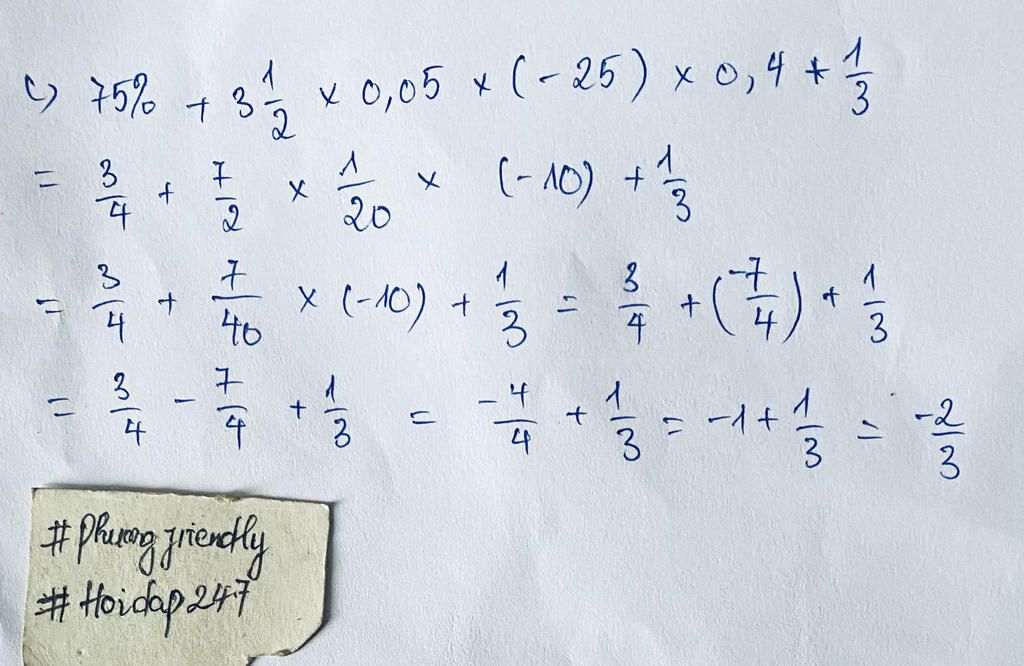 c) 75% + 3 1/2 × 0,05 × (-25) × 0,4 + 1/3
= 3/4 + 7/2 × 1/20 × (-10) + 1/3
= 3/4 + 7/40 × (-10) + 1/3 = 3/4 + (-7/4) + 1/3
= 3/4 - 7/4 + 1/3 = -4/4 + 1/3 = -1 + 1/3 = -2/3
# Phương friendly
# Hoidap247